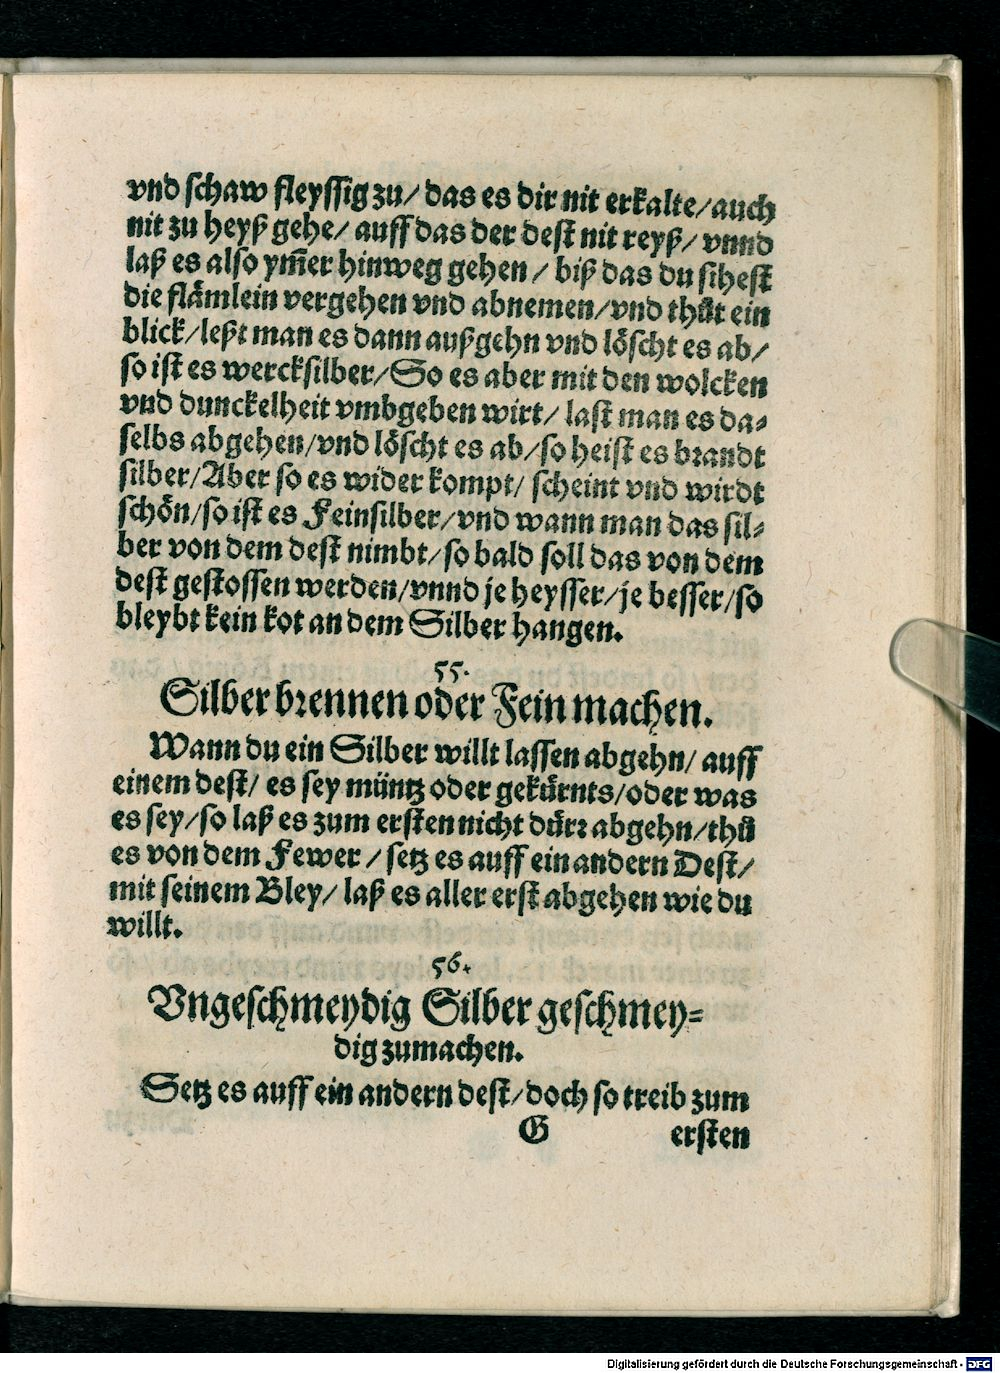 vnd schaw fleyssig zu/ das es dir nit erkalte/auch
nit zu heyß gehe/ auff das der dest nit reyß/ vnnd
laß es also ym̃er hinweg gehen/ biß das du sihest
die flämlein vergehen vnd abnemen/vnd thůt ein
blick/leßt man es dann außgehn vnd löscht es ab/
so ist es wercksilber/So es aber mit den wolcken
vnd dunckelheit vmbgeben wirt/ last man es da⸗
selbs abgehen/vnd löscht es ab/so heist es brandt
silber/Aber so es wider kompt/ scheint vnd wirdt
schön/so ist es Feinsilber/vnd wann man das sil⸗
ber von dem dest nimbt/so bald soll das von dem
dest gestossen werden/vnnd je heysser/je besser/so
bleybt kein kot an dem Silber hangen.
55.
Silber brennen oder Fein machen.
Wann du ein Silber willt lassen abgehn/ auff
einem dest/ es sey müntz oder gekürnts/oder was
es sey/so laß es zum ersten nicht dürr abgehn/thů
es von dem Fewer/ setz es auff ein andern Dest/
mit seinem Bley/ laß es aller erst abgehen wie du
willt.
56.
Vngeschmeydig Silber geschmey⸗
dig zumachen.
Setz es auff ein andern dest/doch so treib zum
G ersten
Digitalisierung gefördert durch die Deutsche Forschungsgemeinschaft - DFG